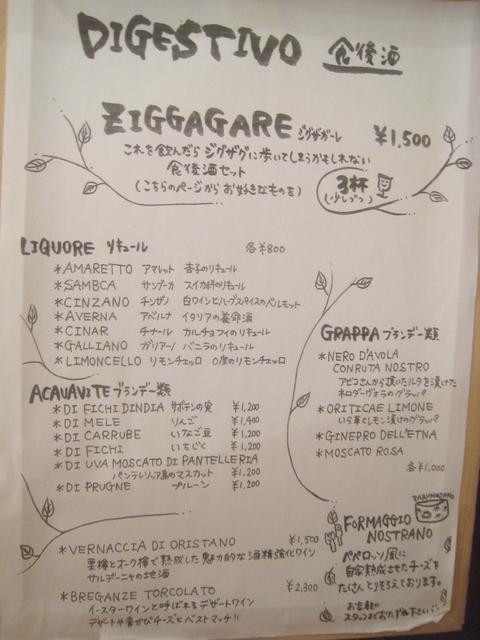 DIGESTIVO 食後酒
ZIGGAGARE ジグザガーレ ¥1,500
これを飲んだら ジグザグに歩いてしまうかもしれない
食後酒セット
(こちらのページから お好きなものを)
3杯
(少しづつ)
LIQUORE リキュール 各¥800
*AMARETTO アマレット 杏子のリキュール
*SAMBCA サンブーカ スイカ糾のリキュール
*CINZANO チンザノ 白ワインとハーブスパイスのベルモット
*AVERNA アベルナ イタリアの養命酒
*CINAR チナール カルチョフィのリキュール
*GALLIANO ガリアーノ バニラのリキュール
*LIMONCELLO リモンチェッロ 0度のリモンチェッロ
ACAVAVITE ブランデー類
*DI FICHI DINDIA サボテンの実 ¥1,200
*DI MELE りんご ¥1,400
*DI CARRUBE いなご豆 ¥1,200
*DI FICHI いちじく ¥1,200
*DI UVA MOSCATO DI PANTELLERIA
パンテレリア島のマスカット ¥1,200
*DI PRUGNE プルーン ¥1,200
GRAPPA ブランデー類
*NERO D'AVOLA
CONRUTA NOSTRO
アピコさんから頂いたルタを漬けた
ネロダーヴォラのグラッパ
*ORITICAE LIMONE
いら草とレモン漬けのグラッパ
*GINEPRO DELL'ETNA
*MOSCATO ROSA
各¥1,000
*VERNACCIA DI ORISTANO ¥1,500
栗樽とオーク樽で熟成した魅力的な酒精強化ワイン
サルデーニャの地酒
*BREGANZE TORCOLATO ¥2,300
イースターワインと呼ばれるデザートワイン
デザートや青かびチーズとベストマッチ!!
FORMAGGIO
NOSTRANO
ペペロッソ風に
自家熟成させたチーズを
たくさんとりそろえております。
お気軽に
スタッフまでおたずね下さい